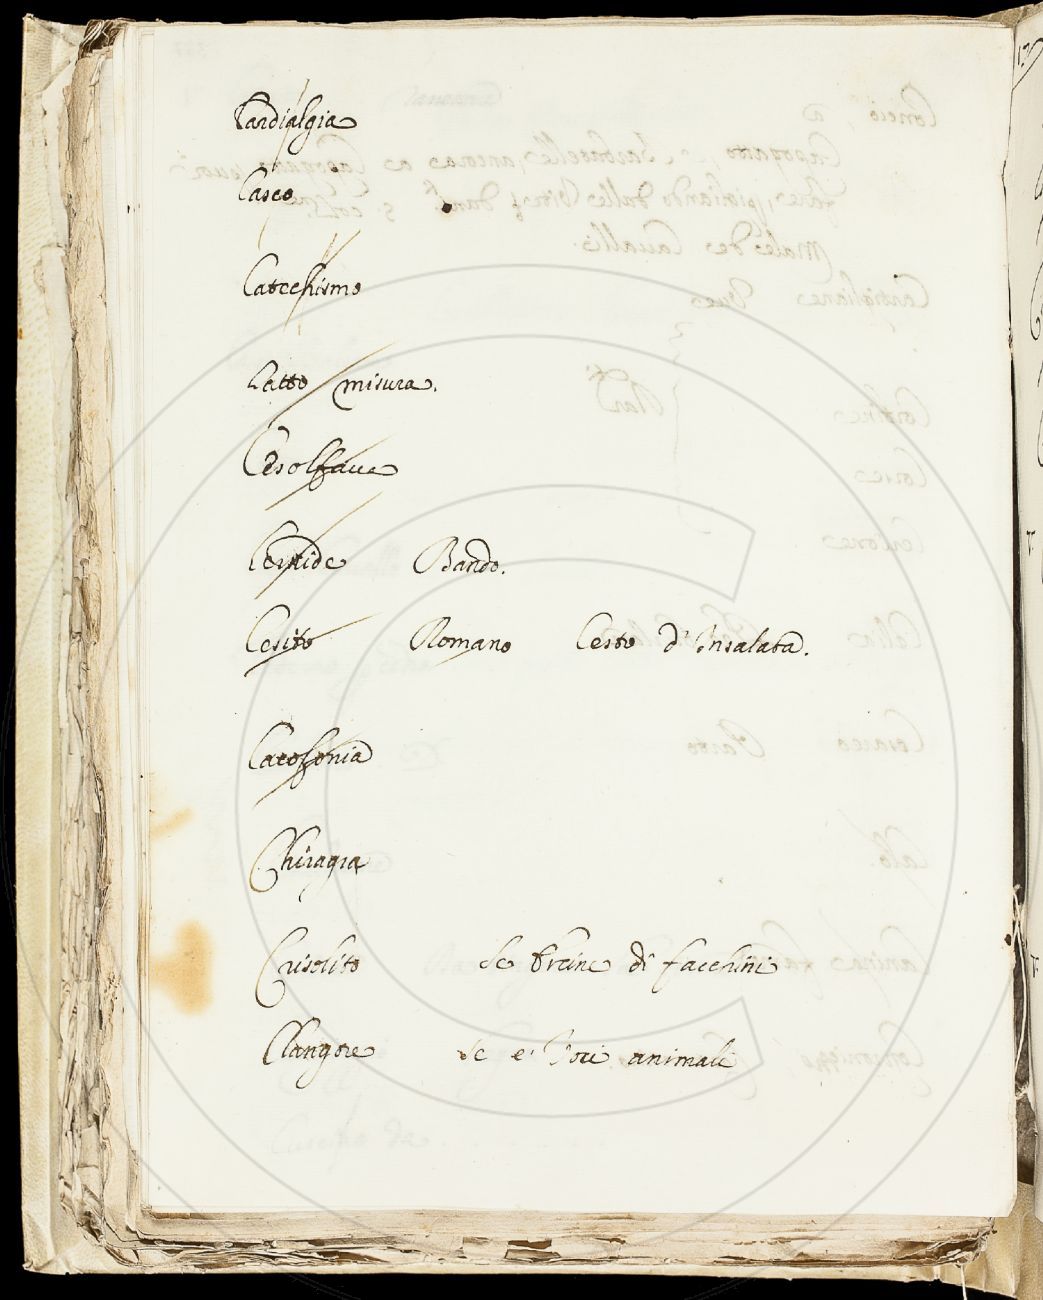 Cardialgia
Casco
Catechismo
Catto misura.
Cesolfaue
Bando.
Cesito Romano Cesto d'Insalata.
Cacofonia
Chiragra
Crisolito di facchini
Clangore se e' Voci animali